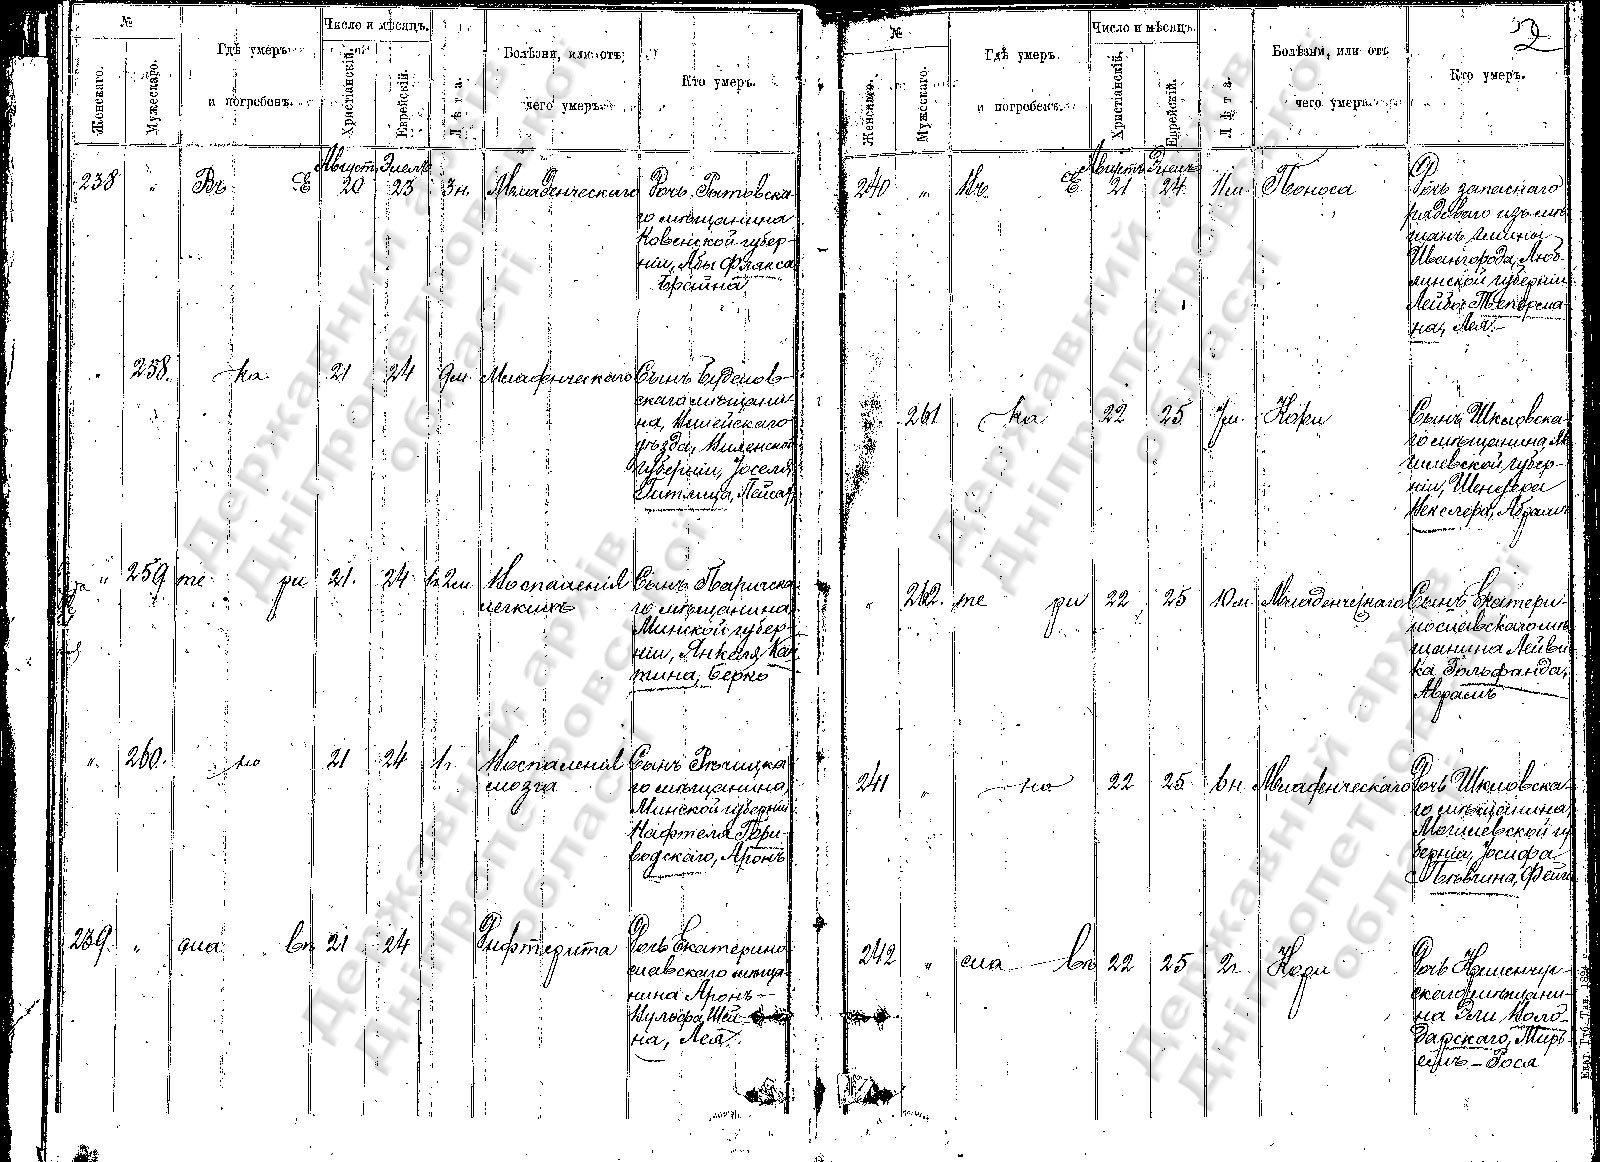 №
Женскаго.
Мужескаго.
Гдѣ умеръ
и погребенъ.
Число и мѣсяцъ.
Христіанскій.
Еврейскій.
Лѣта.
Болѣзни, или отъ
чего умеръ.
Кто умеръ.
238 " Въ Е
Августъ 20
23
3 н.
Младенческаго
Дочь
го мѣщанина
Ковенской губер-
ніи, Абы
" 258. ка 21 24 9 м. Младенческаго
Сынъ
скаго мѣщани
на, Вилейскаго
уѣзда, Виленской
губерніи, Іоселя
Гитлица,
" 259 те ри 21. 24 1 г. 2 м. Воспаленія
легкихъ
Сынъ Паричска
го мѣщанина
Минской губер-
ніи, Янкеля
тина, Берко
" 260. но 21 24 1 г. Воспаленія
мозга
Сынъ Рѣчицка
го мѣщанина,
Минской губерніи
Нафтеля Гори-
водскаго, Аронъ
239. " сла въ 21 24 Дифтерита
Дочь Екатерино
славскаго мѣща-
нина Аронъ-
Вульфа Шей-
на, Лея.
№
Женскаго.
Мужескаго.
Гдѣ умеръ
и погребенъ.
Число и мѣсяцъ.
Христіанскій.
Еврейскій.
Лѣта.
Болѣзни, или отъ
чего умеръ.
Кто умеръ.
240 " Въ Е
Августъ 21
24
11 м. Поноса
Дочь запаснаго
рядового изъ мѣ
щанъ гмины
Ивангорода, Люб-
линской губерніи
Лейбы Тепереми
на, Лея.
" 261 ка 22 25 7 м. Кори
Сынъ Шкловска-
го мѣщанина Мо
гилевской губер-
ніи,
Векслера, Абрамъ
" 262. те ри 22 25 10 м. Младенческаго
Сынъ Екатери-
нославскаго мѣ
щанина Лейви-
ка Гольфанда,
Аврамъ
241 " но 22 25 6 н. Младенческаго
Дочь Шкловска-
го мѣщанина,
Могилевской гу
берніи, Іосифа
Пѣвчина, Фейга
242 " сла въ 22 25 2 г. Кори
Дочь Кременчуг-
скаго мѣщани-
на Эли Воло-
дарскаго, Мирь
емъ-Рося
Державний архів
Дніпропетровської
області